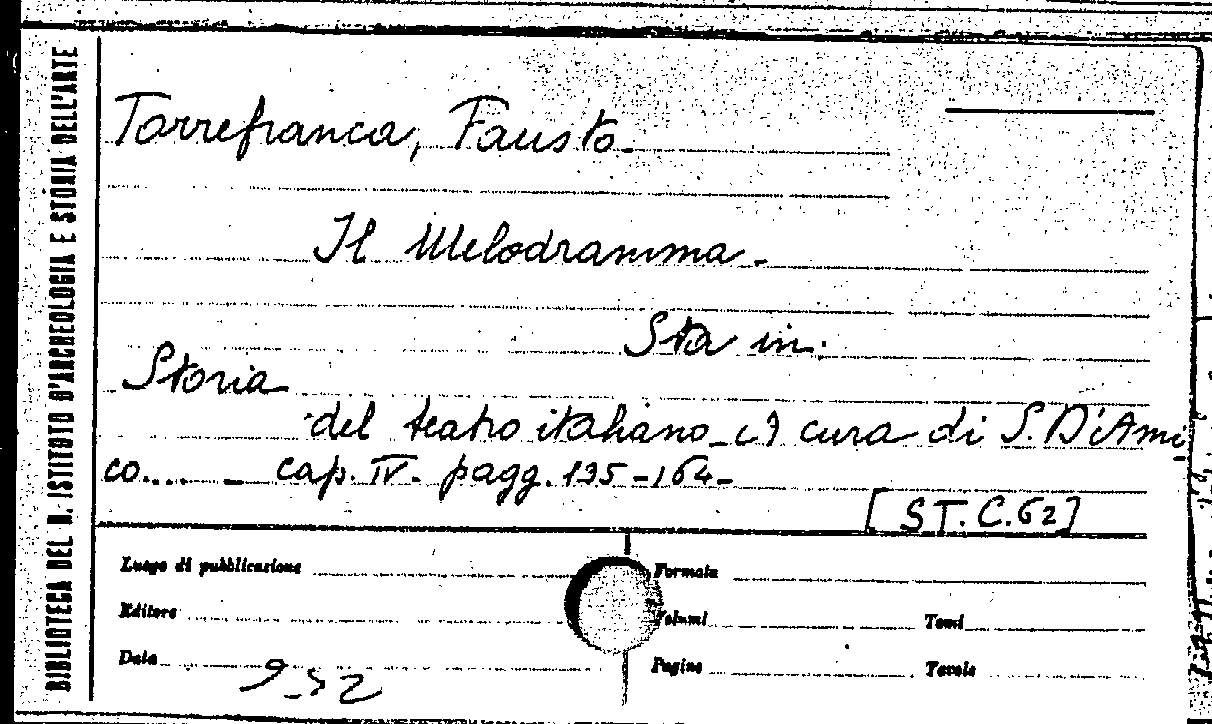 BIBLIOTECA DEL R. ISTITUTO D'ARCHEOLOGIA E STORIA DELL'ARTE
Torrefranca, Fausto.
Il Melodramma.
Sta in:
Storia
del teatro italiano a cura di S. D'Ami
co.... - cap. IV. pagg. 135-164-
[ST. C. 62]
Luogo di pubblicazione
Formato
Editore
Volumi
Tomi
Data
Pagine
Tavole